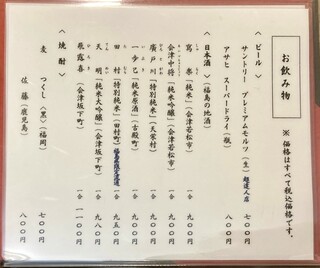 お飲み物
※ 価格はすべて税込価格です。
<ビール>
サントリー プレミアムモルツ(生) 超達人店 七〇〇円
アサヒ スーパードライ(瓶) 八〇〇円
<日本酒> (福島の地酒)
寫楽(純米酒)(会津若松市) 一合 九〇〇円
会津中将(純米吟醸)(会津若松市) 一合 九〇〇円
廣戸川(特別純米)(天栄村) 一合 九〇〇円
一歩己(純米原酒)(古殿町) 一合 九〇〇円
田村(特別純米)(田村町) 一合 九五〇円
天明(純米大吟醸)(会津坂下町) 一合 九八〇円
飛露喜(会津坂下町) 一合 一一〇〇円
<焼酎>
麦 つくし(黒)(福岡) 七〇〇円
佐藤(鹿児島) 八〇〇円